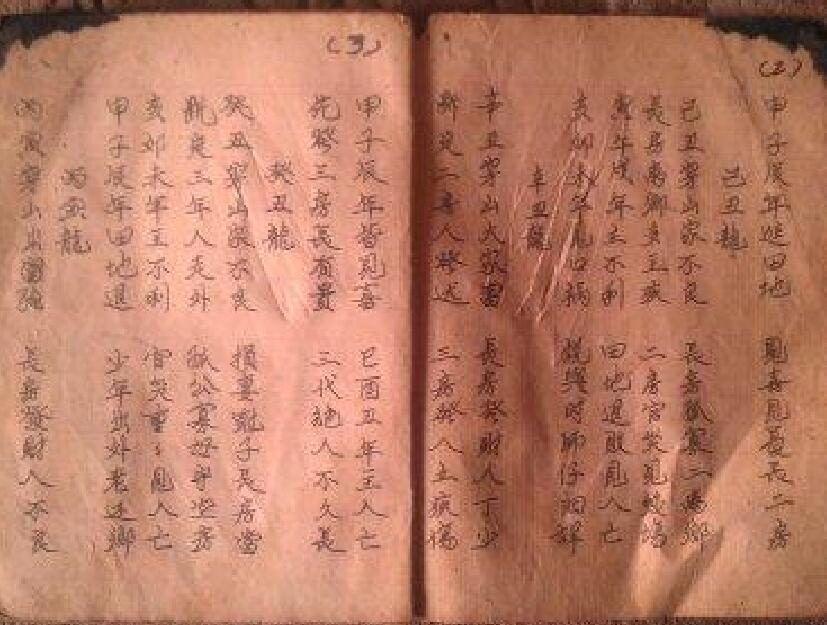 (2)
甲子辰年進田地 見喜見著長二房
己丑龍
己丑穿山家不良 長房孤寡二為鄉
長房离鄉多主 二房官災見蛟
寅午戌年主不利 田地退敗見人亡
亥卯未年 口禍 說與時師仔細詳
辛丑龍
辛丑穿山大家富 長房發財人丁少
二房人 三房發人主
(3)
甲子辰年皆見喜 巳酉丑年主人亡
三房長有貴 三代絕人不久長
癸丑龍
癸丑穿山家不良 損妻剋子長房當
龍良三年人走外 孤公寡母守空房
亥卯未年主不利 官災重〻見人亡
甲子辰年田地退 少年出外老还鄉
丙寅龍
丙寅穿山出富強 長房發財人不良